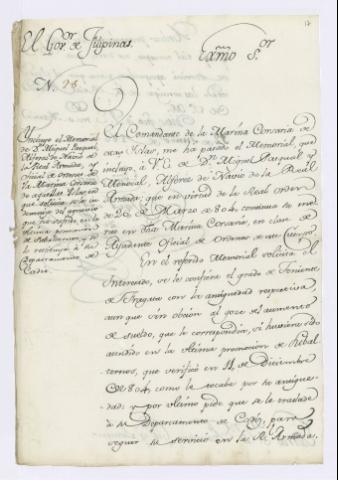 17
El Gov.or de Filipinas.
Exmô S.or
N. 98.
Incluye el Memorial
de D.n Miguel Pasqual
Alferez de Navio de
la Real Armada, y
Oficial de ordenes de
la Marina Corsaria
de aquellas Islas en
que solicita se le
del agravio
que ha sufrido en la
ultima promocion
de
le restituya a su
Departamento de
Cadiz.
El Comandante de la Marina Corsaria de
estas Islas, me ha pasado el Memorial, que
incluyo à V.E. de D.n Miguel Pasqual y
Alferez de Navio de la Real
Armada, que en virtud de la Real orden
de 20 de Marzo de 804, continua su
en dha Marina Corsaria, en clase de
Ayudante Oficial de Ordenes de este Cuerpo
En el referido Memorial solicita el
Interesado, se le confiera el grado de Teniente
de Fragata con la antiguedad respectiva
aunque sin obcion al goze del aumento
de sueldo, que le correspondia, si hubiera sido
atendido en la ultima promocion de Subal
ternos, que se verificó en 11 de Diciembre
de 804, como le tocaba por su antigue
dad: y por ultimo pide que se le traslade
à su Departamento de Cadiz, para
seguir su servicio en la R.l Armada,